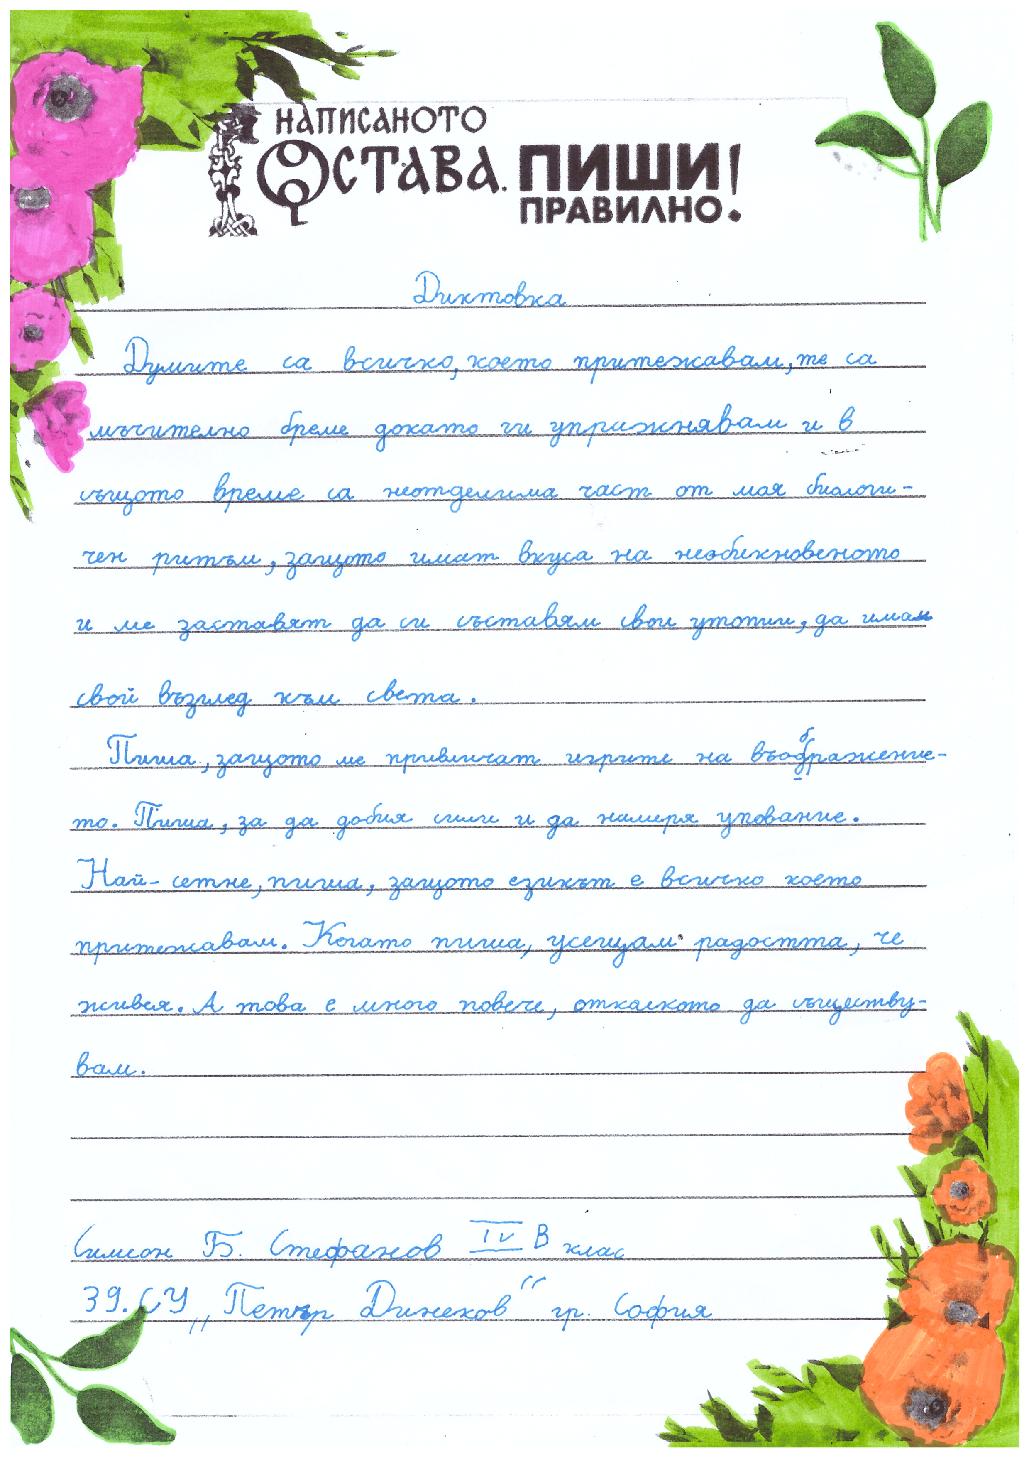 НАПИСАНОТО
ОСТАВА. ПИШИ!
ПРАВИЛНО.
Диктовка
Думите са всичко, което притежавам, те са
мъчително бреме докато ги упражнявам и в
същото време са неотделима част от моя биологи-
чен ритъм, защото имат вкуса на необикновеното
и ме заставят да си съставям свои утопии, да имам
свой възглед към света.
Пиша, защото ме привличат игрите на въображение-
то. Пиша, за да добия сили и да намеря упование.
Най- сетне, пиша, защото езикът е всичко което
притежавам. Когато пиша, усещам радостта, че
живея. А това е много повече, отколкото да съществу-
вам.
Симеон Б. Стефанов IV В клас
39. СУ „Петър Динеков“ гр. София